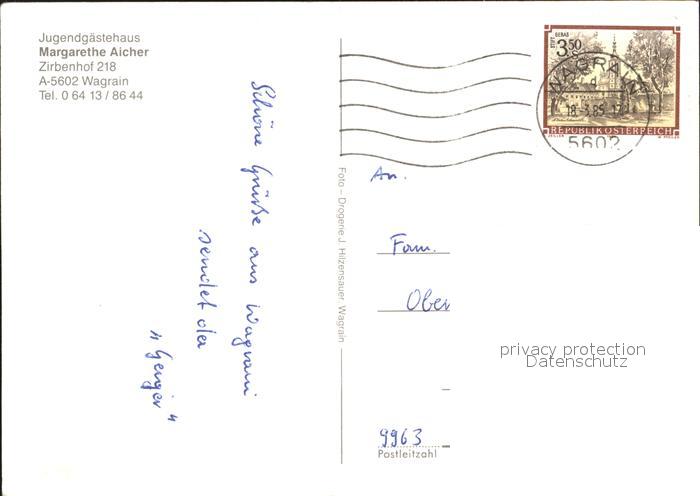 Jugendgästehaus
Margarethe Aicher
Zirbenhof 218
A-5602 Wagrain
Tel. 0 64 13 / 86 44
Schöne Grüße aus Wagrain
sendet der
" Geiger "
Foto – Drogerie J. Hilzensauer, Wagrain
STIFT GERAS
3.50
S
REPUBLIK ÖSTERREICH
WAGRAIN
d
18 - 3.85 - 17
5602
An.
Fam.
Ober
privacy protection
Datenschutz
9963
Postleitzahl